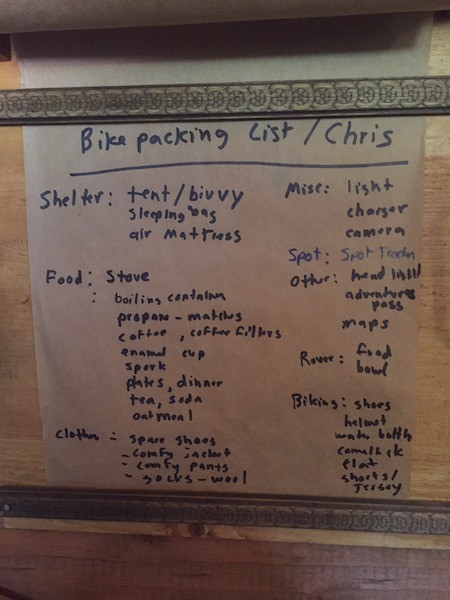 Bikepacking List / Chris
Shelter: tent/bivvy
sleeping bag
air mattress
Food: Stove
: boiling container
propane - matches
coffee, coffee filters
enamel cup
spork
plates, dinner
tea, soda
oatmeal
Clothes - spare shoes
- comfy jacket
- comfy pants
- socks - wool
Misc: light
charger
camera
Spot: Spot Tracker
Other: head light
adventures pass
maps
Rover: food
bowl
Biking: shoes
helmet
water bottle
camelback
flat
shorts/
Jersey